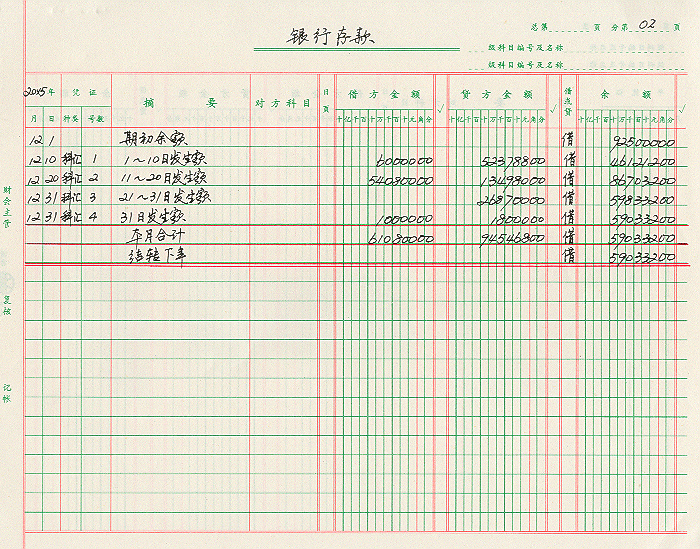 银行存款
总第 页 分第 02 页
级科目编号及名称
级科目编号及名称
2015年 凭证 摘要 对方科目 日页 借方金额 √ 贷方金额 √ 借或贷 余额 √
月 日 种类 号数 十亿千百十万千百十元角分 十亿千百十万千百十元角分 十亿千百十万千百十元角分
12 1 期初余额 借 92500000
12 10 科汇 1 1~10日发生额 6000000 52378800 借 46121200
12 20 科汇 2 11~20日发生额 54080000 13498000 借 86703200
12 31 科汇 3 21~31日发生额 26870000 借 59833200
12 31 科汇 4 31日发生额 1000000 1800000 借 59033200
本月合计 61080000 94546800 借 59033200
结转下年 借 59033200
财会主管
复核
记帐